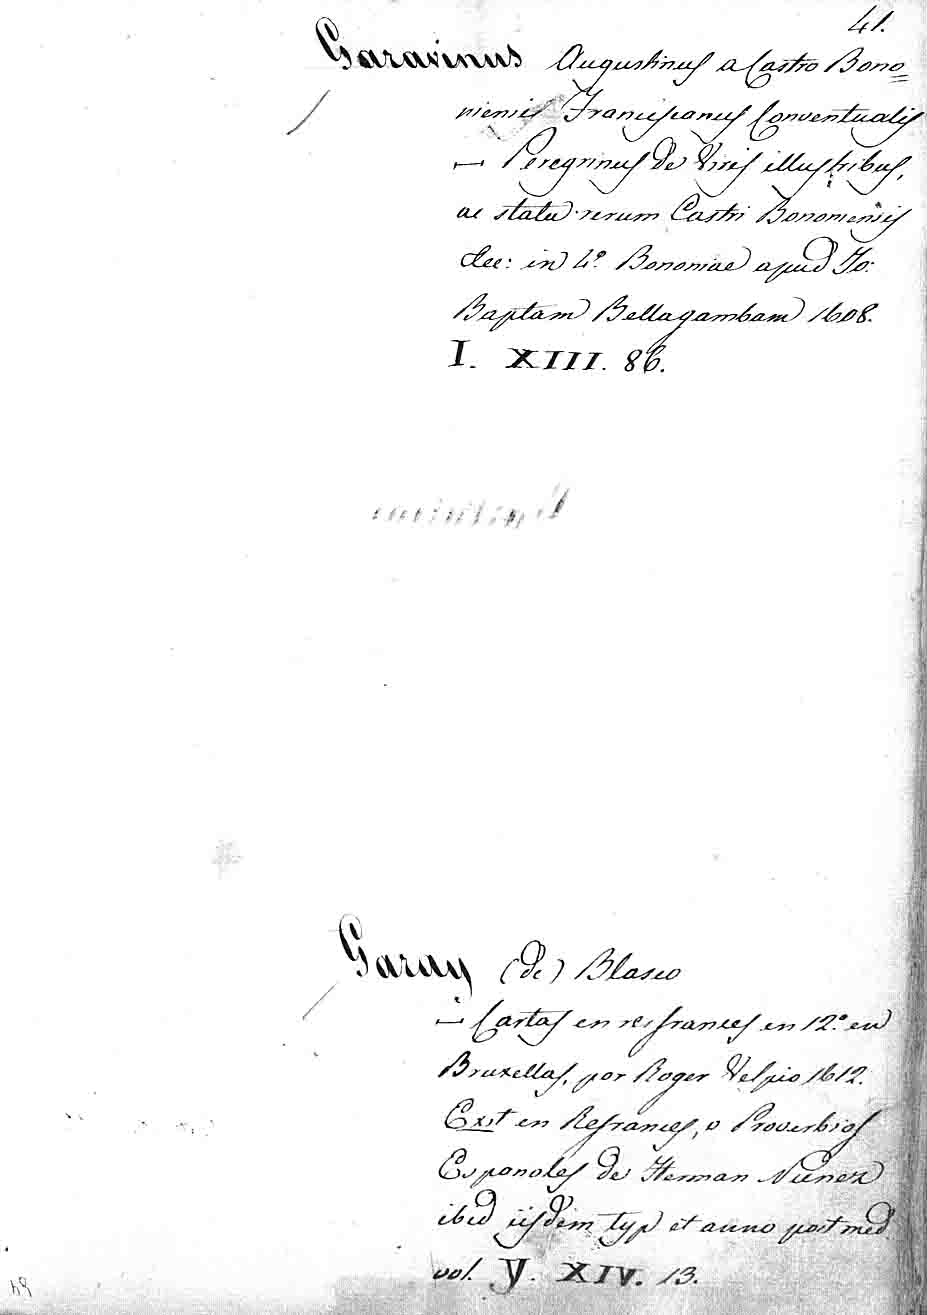 41.
Garavinus Augustinus a Castro Bono=
niensi Franciscanus Conventualis
— Peregrinus de Viris illustribus,
ac statu rerum Castri Bononiensis
&ec: in 4.° Bononiae apud Jo:
Baptam Bellagambam 1608.
I. XIII. 86.
Garay (de) Blasco
— Cartas en refrances en 12.° en
Bruxellas, por Roger Velpio 1612.
Exit en Refrances, o Proverbios
Espanoles de Herman Nunez
ibid iisdem typ et anno post med
vol. Y. XIV. 13.